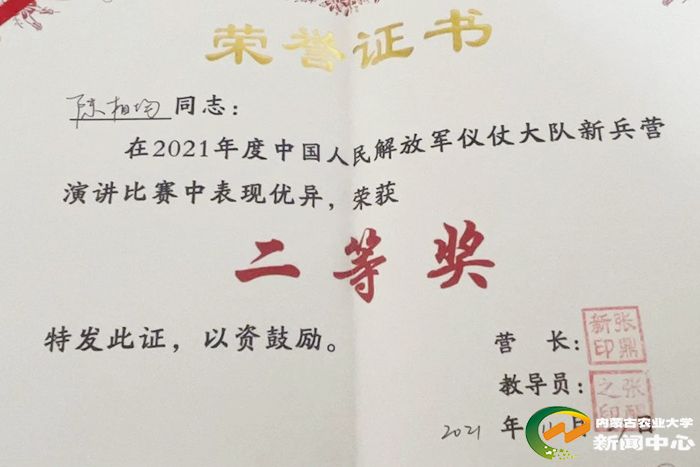 荣誉证书
陈相均同志：
在2021年度中国人民解放军仪仗大队新兵营
演讲比赛中表现优异，荣获
二等奖
特发此证，以资鼓励。
营 长：
张鼎新印
教导员：
2021 年 月 日
内蒙古农业大学
新闻中心